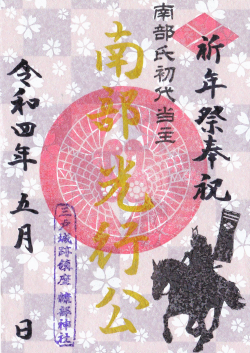 祈年祭奉祝
南部氏初代当主
南部光行公
令和四年五月 日
三戸城跡鎮座 糠部神社